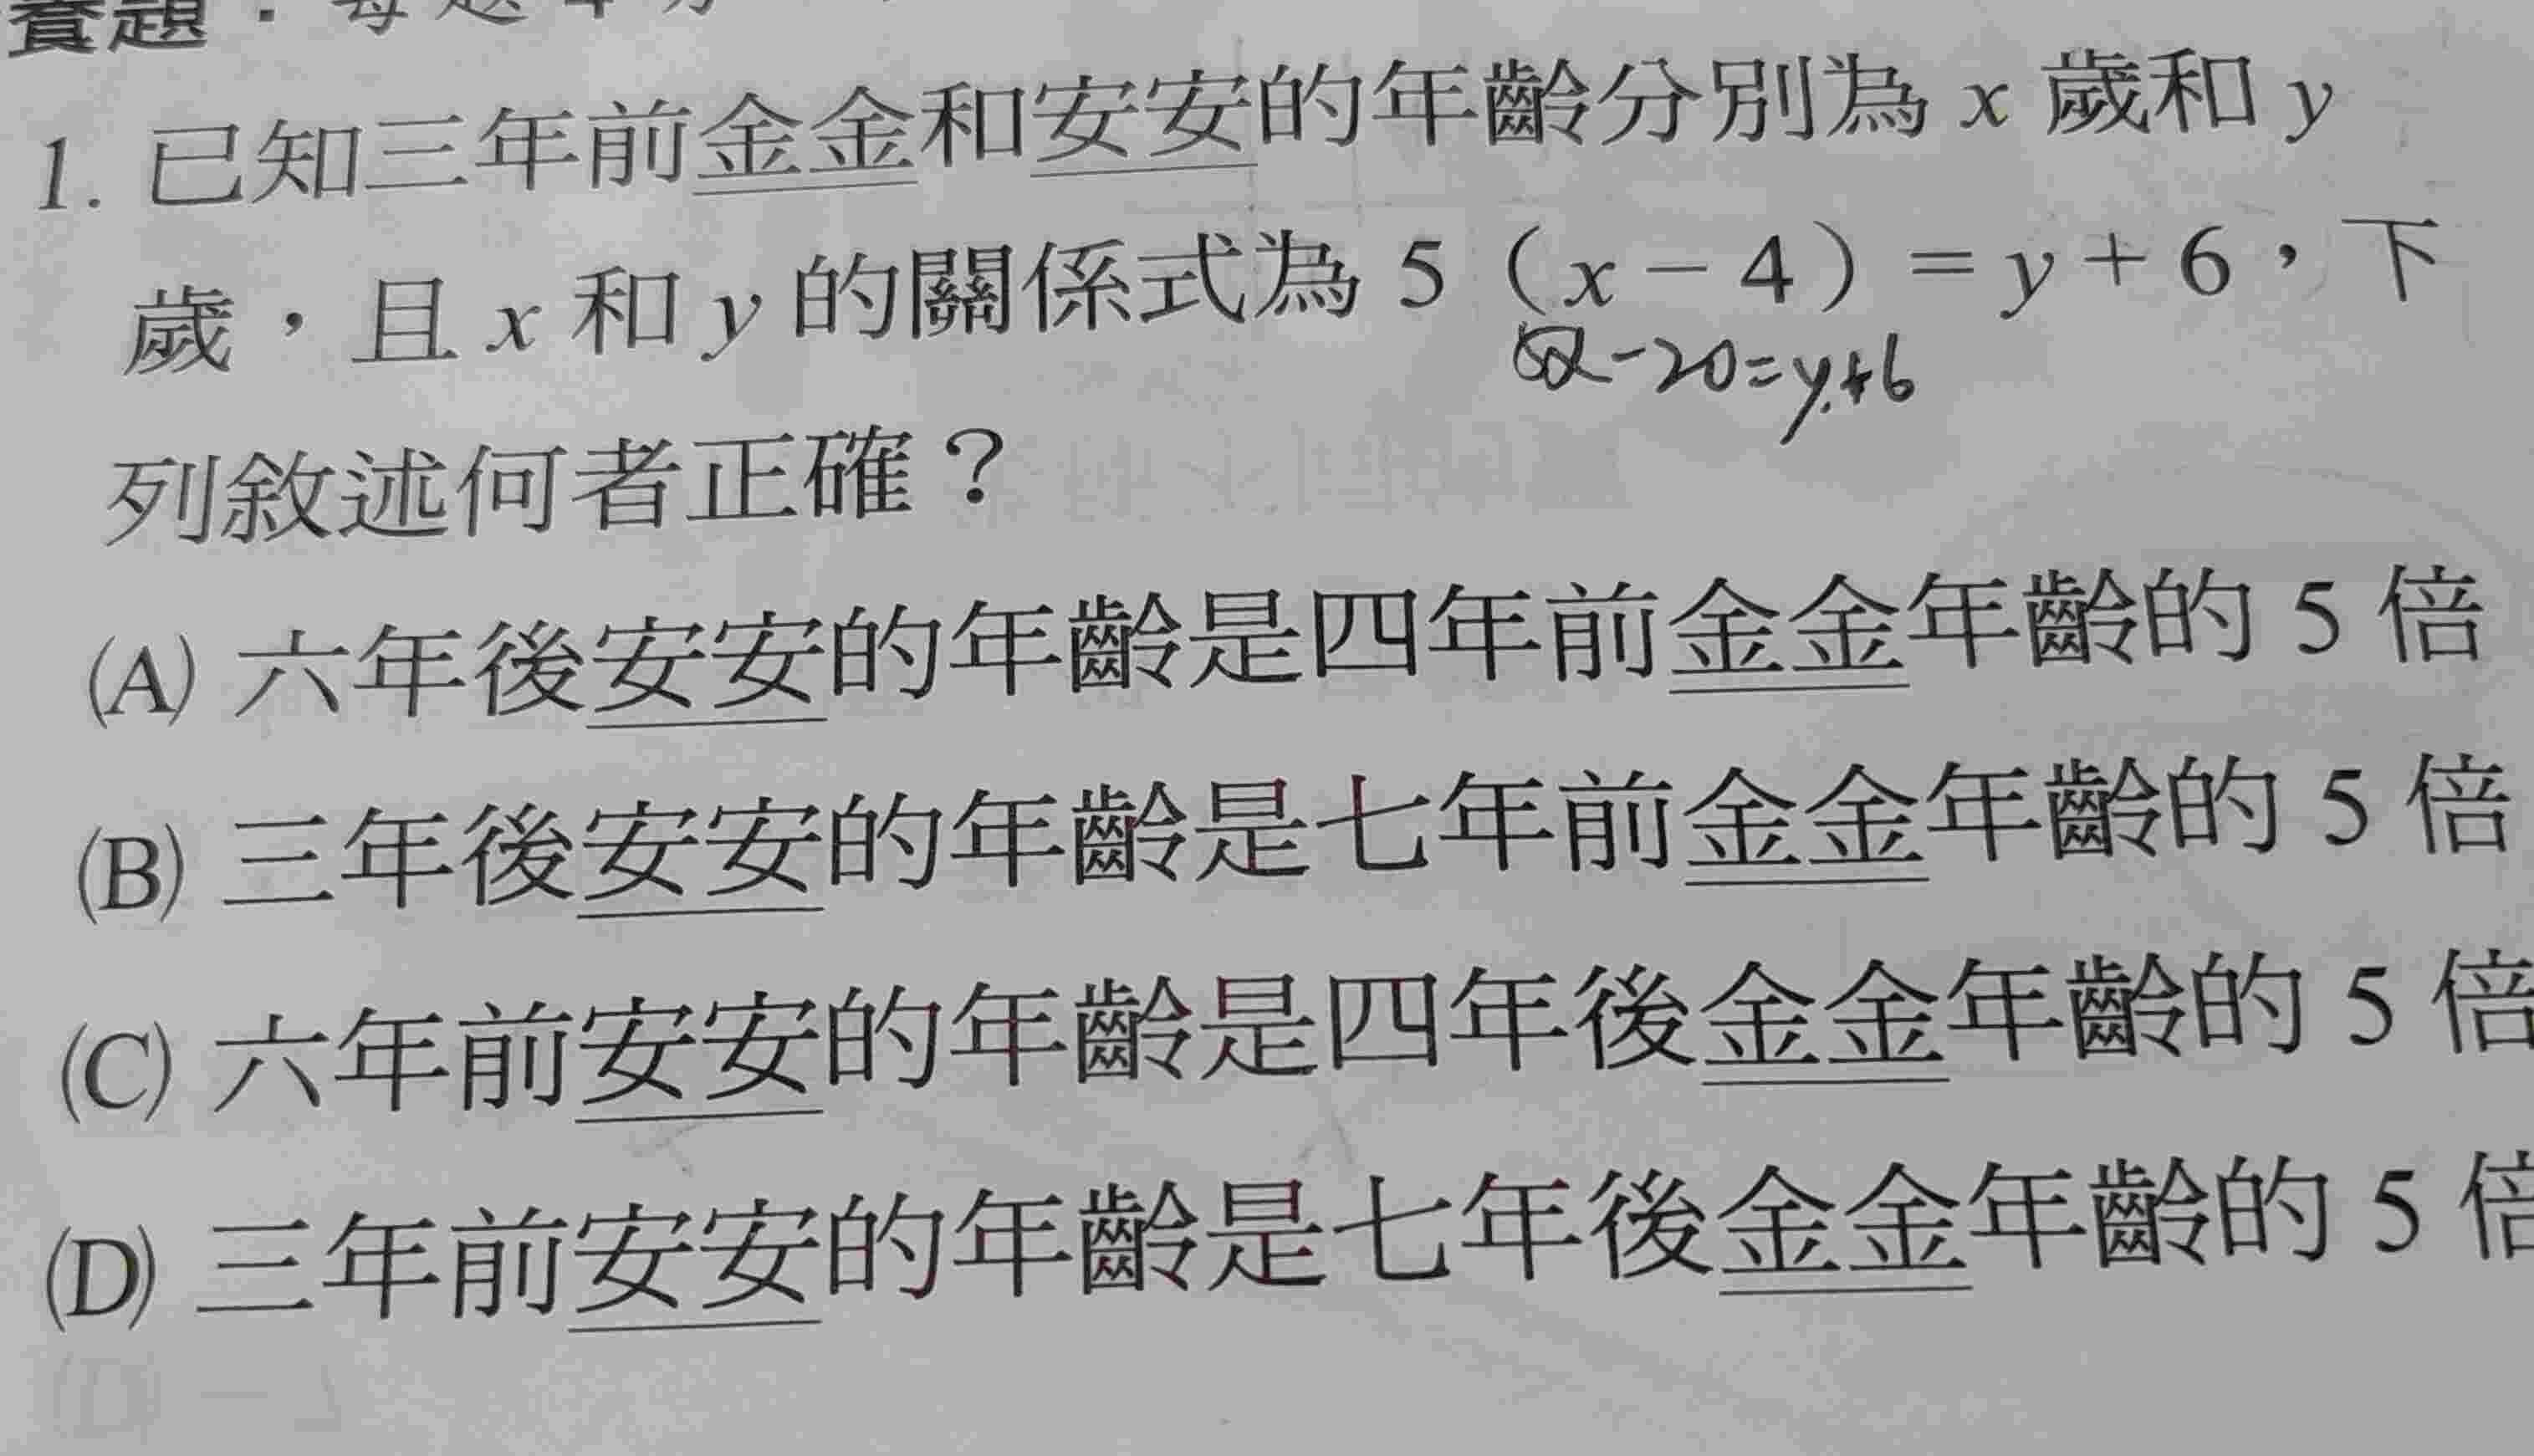 題：每題4分
1. 已知三年前金金和安安的年齡分別為 x 歲和 y
歲，且 x 和 y 的關係式為 5（x－4）＝y＋6，下
5x-20=y+6
列敘述何者正確？
(A) 六年後安安的年齡是四年前金金年齡的 5 倍
(B) 三年後安安的年齡是七年前金金年齡的 5 倍
(C) 六年前安安的年齡是四年後金金年齡的 5 倍
(D) 三年前安安的年齡是七年後金金年齡的 5 倍